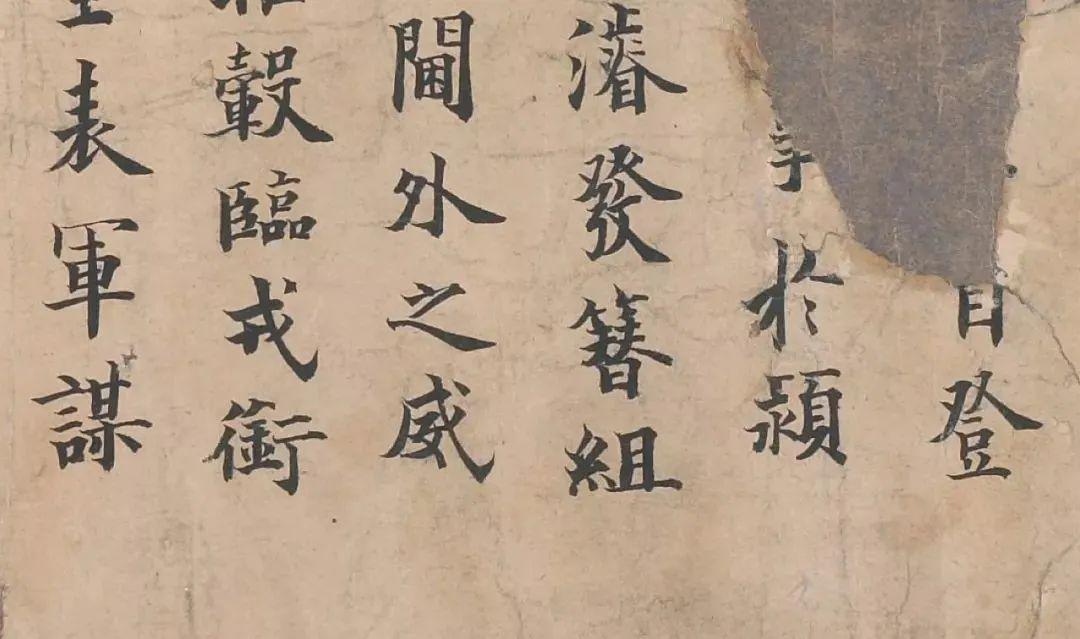 日登
於潁
濬發簪組
閫外之威
轂臨戎銜
表軍謀